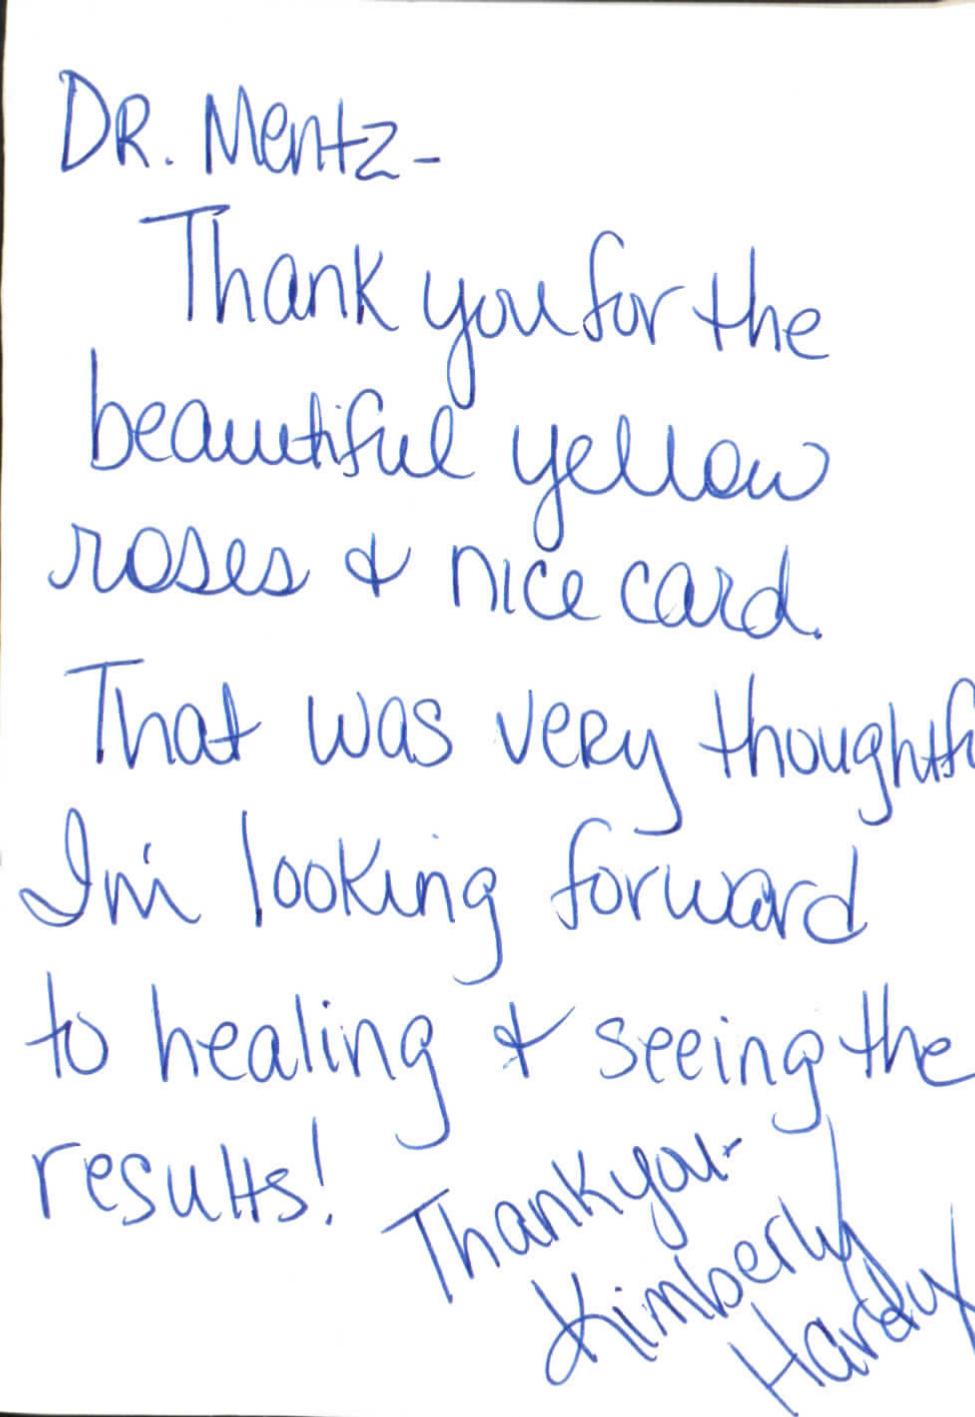 DR. Mentz-
Thank you for the
beautiful yellow
roses & nice card.
That was very thoughtfu
I'm looking forward
to healing & seeing the
results!
Thank you-
Kimberly
Hardy